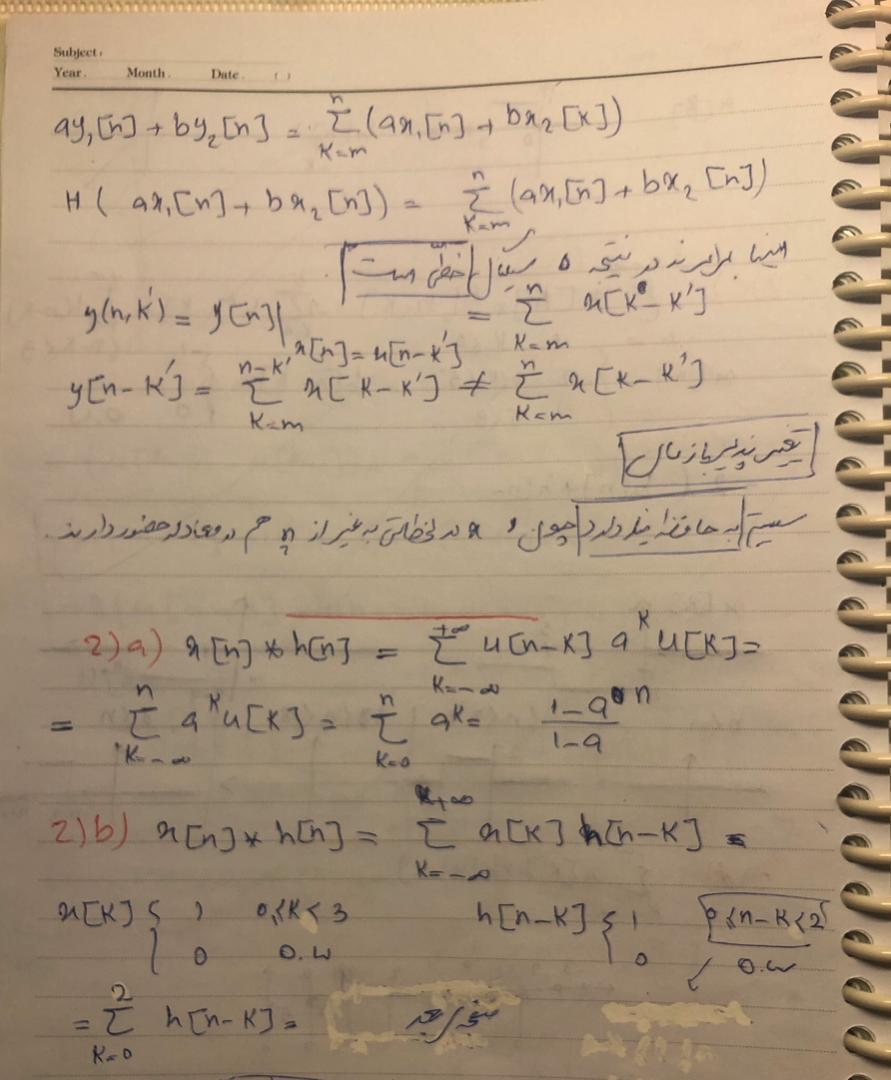 Subject:
Year. Month. Date. ( )
ay₁[n] + by₂[n] = Σ_{K=m}^{n} (ax₁[n] + bx₂[K])
H( ax₁[n] + bx₂[n]) = Σ_{K=m}^{n} (ax₁[n] + bx₂[n])
اینها برابرند در نتیجه سیگنال خطی است
y(n,k') = y[n]|_{x[n]=x[n-k']} = Σ_{K=m}^{n} x[K-K']
y[n-K'] = Σ_{K=m}^{n-K'} x[K-K'] ≠ Σ_{K=m}^{n} x[K-K']
تغییر پذیر با زمان
سیستم به حافظه نیاز دارد چون x در لحظاتی به غیر از n هم در معادله حضور دارند.
2)a) x[n] * h[n] = Σ_{K=-∞}^{+∞} u[n-K] a^K u[K] =
= Σ_{K=-∞}^{n} a^K u[K] = Σ_{K=0}^{n} a^K = (1-a^n)/(1-a)
2)b) x[n] * h[n] = Σ_{K=-∞}^{+∞} x[K] h[n-K] =
x[K] { 1 0≤K<3 h[n-K] { 1 0≤n-K<2
0 O.W 0 O.W
= Σ_{K=0}^{2} h[n-K] = صفحه بعد